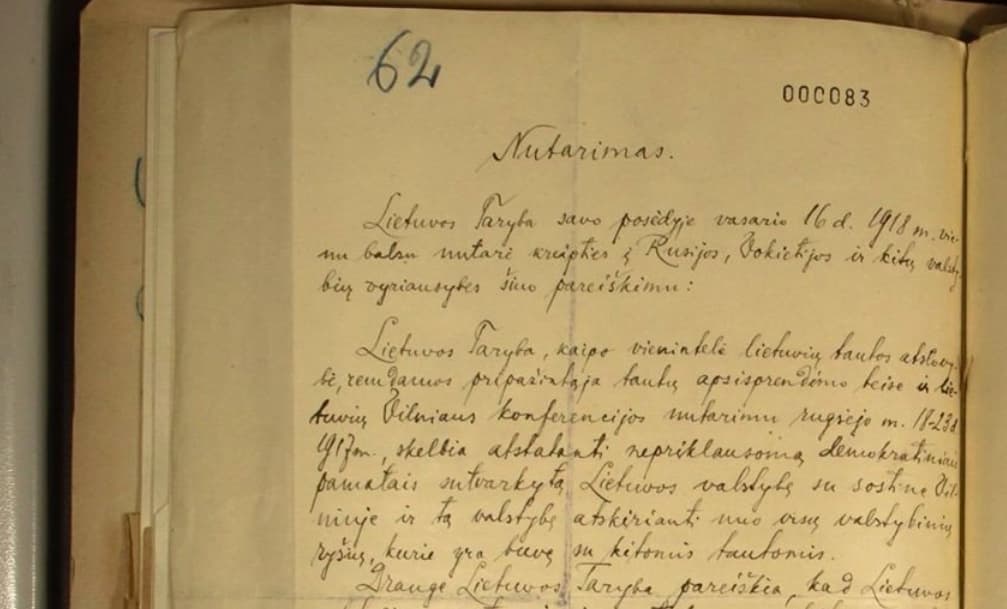 62
000083
Nutarimas.
Lietuvos Taryba savo posėdyje vasario 16 d. 1918 m. vie-
nu balsu nutarė kreipties į Rusijos, Vokietijos ir kitų valsty-
bių vyriausybes šiuo pareiškimu:
Lietuvos Taryba, kaipo vienintelė lietuvių tautos atstovy-
bė, remdamos pripažintąja tautų apsisprendimo teise ir lie-
tuvių Vilniaus konferencijos nutarimu rugsėjo m. 18-23 d
1917 m., skelbia atstatanti nepriklausomą demokratiniais
pamatais sutvarkytą Lietuvos valstybę su sostine Vil-
niuje ir tą valstybę atskirianti nuo visų valstybinių
ryšių, kurie yra buvę su kitomis tautomis.
Drauge Lietuvos Taryba pareiškia, kad Lietuvos